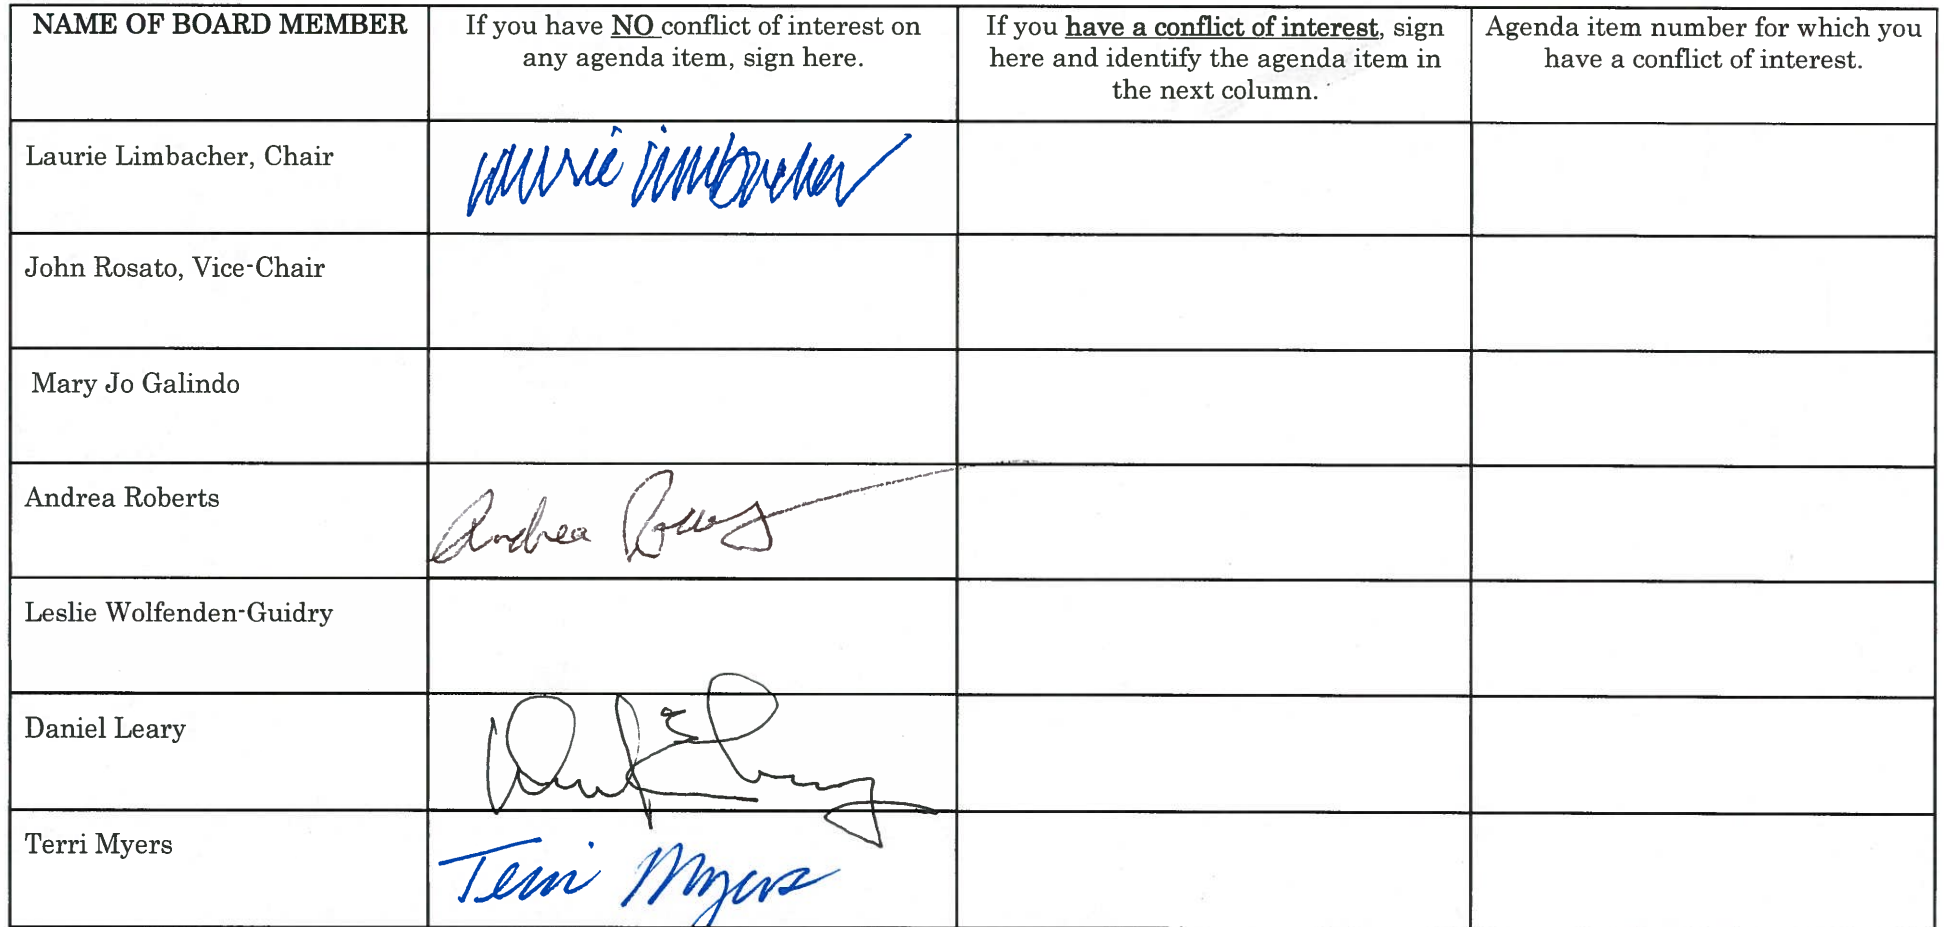 NAME OF BOARD MEMBER
If you have NO conflict of interest on
any agenda item, sign here.
If you have a conflict of interest, sign
here and identify the agenda item in
the next column.
Agenda item number for which you
have a conflict of interest.
Laurie Limbacher, Chair
Laurie Limbacher
John Rosato, Vice-Chair
Mary Jo Galindo
Andrea Roberts
Andrea Roberts
Leslie Wolfenden-Guidry
Daniel Leary
Terri Myers
Terri Myers